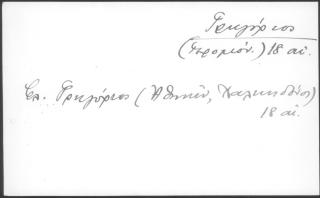 Γρηγόριος
(Ἱερομόν.) 18 αἰ.
Βλ. Γρηγόριος (Ἀθηνῶν, Χαλκηδόνος)
18 αἰ.